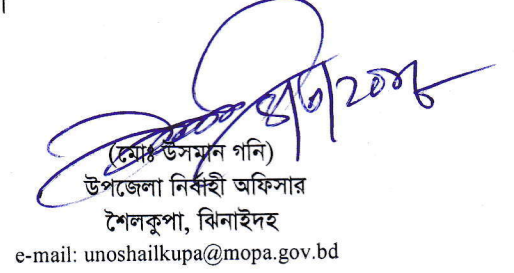 (মোঃ উসমান গনি)
উপজেলা নির্বাহী অফিসার
শৈলকুপা, ঝিনাইদহ
e-mail: unoshailkupa@mopa.gov.bd